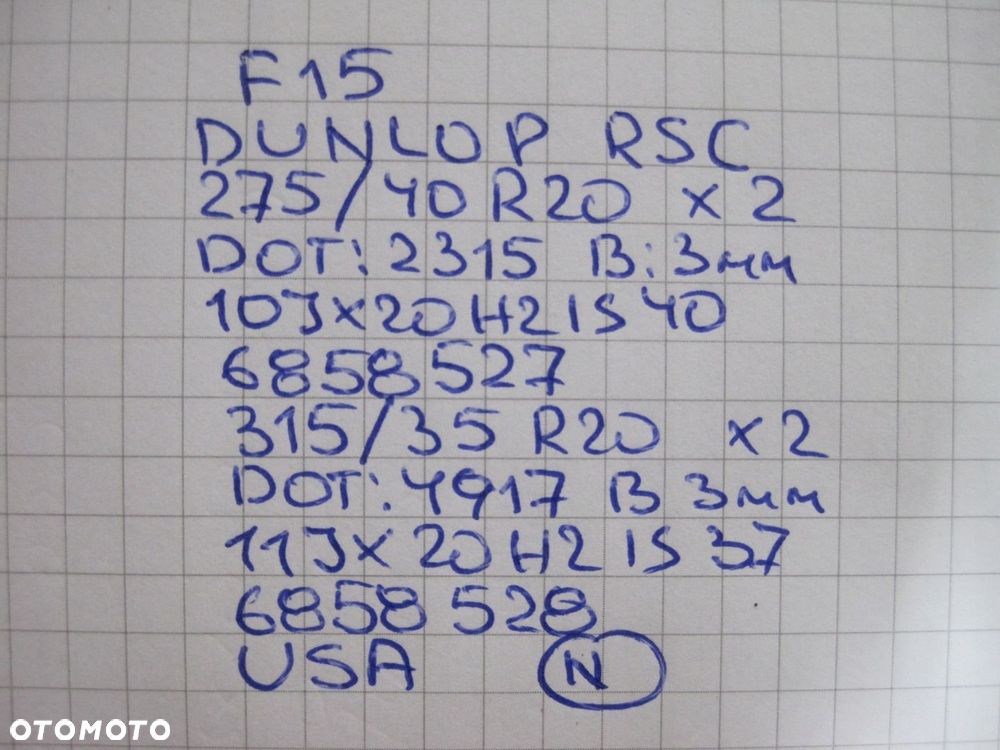 F15
DUNLOP RSC
275/40 R20 x 2
DOT: 2315 B: 3mm
10Jx20 H2 IS 40
6858527
315/35 R20 x 2
DOT: 4917 B 3mm
11Jx20 H2 IS 37
6858528
USA N
OTOMOTO